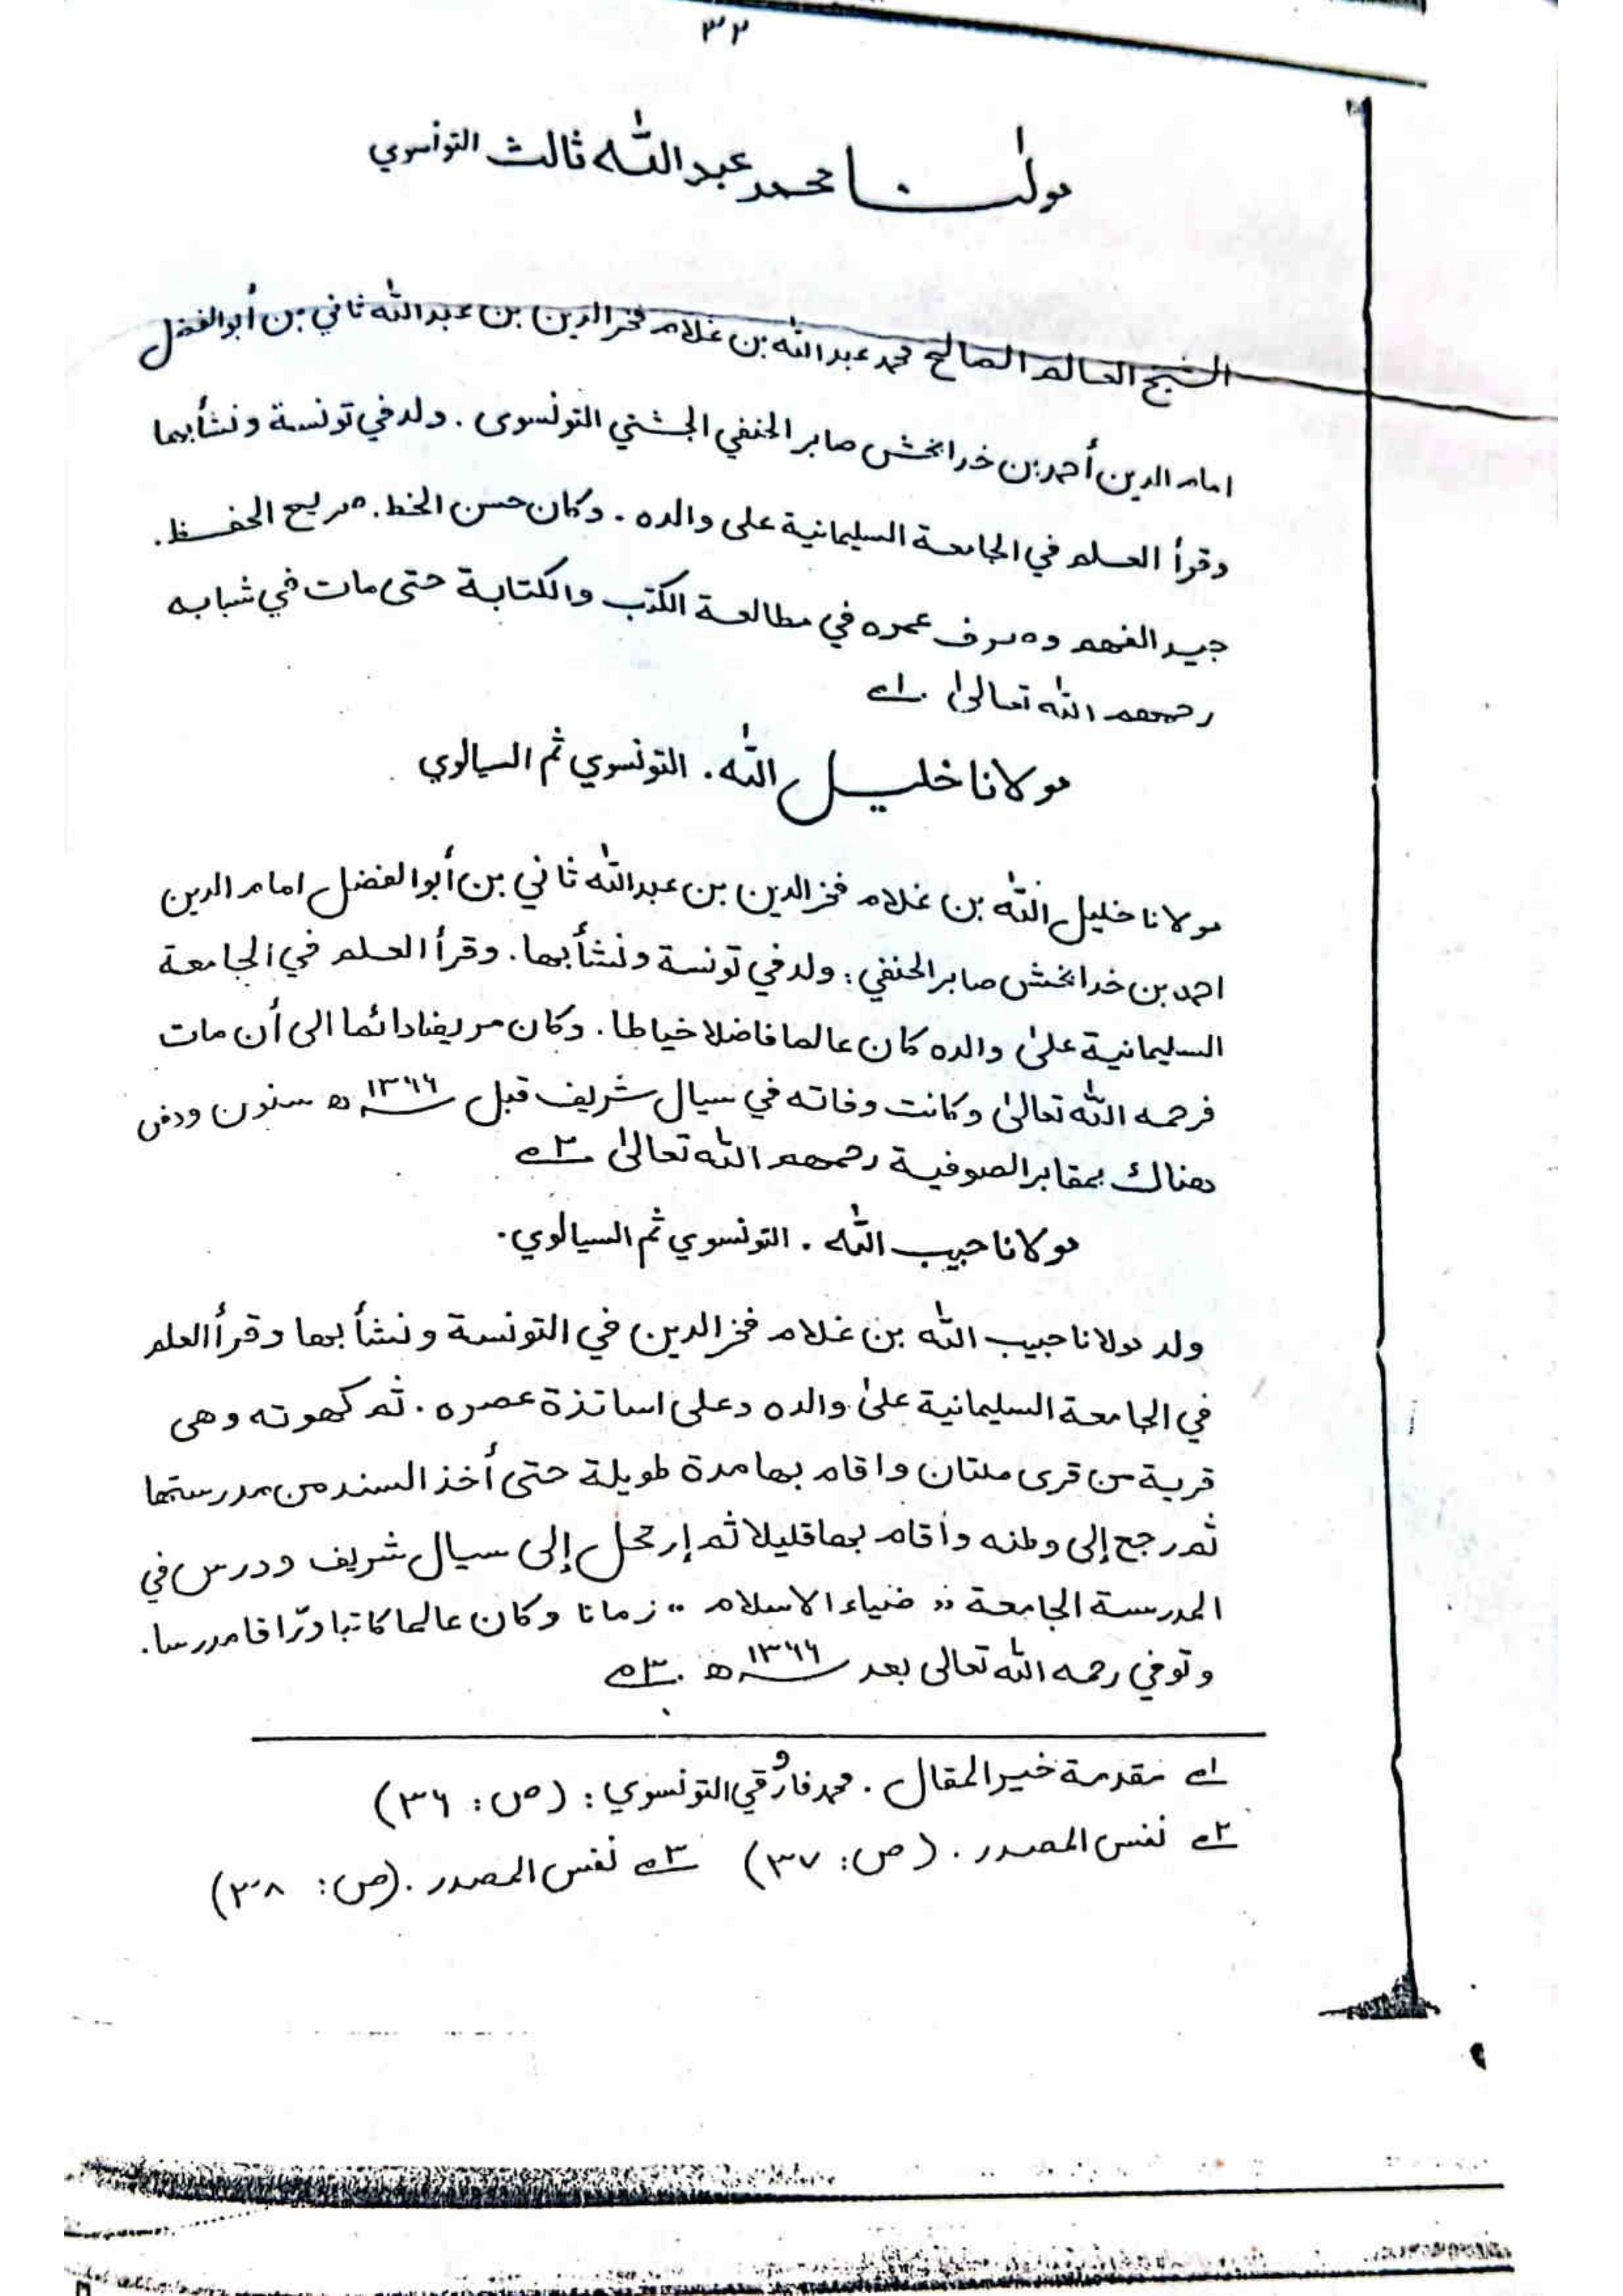 ٣٢
مولٰنا محمد عبد اللّٰه ثالث التونسوي
الشيخ العالم الصالح محمد عبد اللّٰه بن غلام فخر الدين بن عبد اللّٰه ثاني بن أبو الفضل
امام الدين أحمد بن خدا بخش صابر الحنفي الجشتي التونسوى . ولد في تونسة ونشأ بها
وقرأ العلم في الجامعة السليمانية على والده . وكان حسن الخط . سريع الحفظ .
جيد الفهم وصرف عمره في مطالعة الكتب والكتابة حتى مات في شبابه
رحمهم اللّٰه تعالىٰ . ١ے
مولانا خليل اللّٰه . التونسوي ثم السيالوي
مولانا خليل اللّٰه بن غلام فخر الدين بن عبد اللّٰه ثاني بن أبو الفضل امام الدين
احمد بن خدا بخش صابر الحنفي : ولد في تونسة ونشأ بها . وقرأ العلم في الجامعة
السليمانية علىٰ والده كان عالما فاضلا خياطا . وكان مريضا دائما الى أن مات
فرحمه اللّٰه تعالىٰ وكانت وفاته في سيال شريف قبل ١٣٦٦ھ سنون ودفن
هناك بمقابر الصوفية رحمهم اللّٰه تعالىٰ ٢ے
مولانا حبيب اللّٰه . التونسوي ثم السيالوي .
ولد مولانا حبيب اللّٰه بن غلام فخر الدين في التونسة ونشأ بها وقرأ العلم
في الجامعة السليمانية علىٰ والده وعلى اساتذة عصره . ثم كهوته وهى
قرية من قرى ملتان واقام بها مدة طويلة حتى أخذ السند من مدرستها
ثم رجع إلى وطنه وأقام بها قليلا ثم إرتحل إلى سيال شريف ودرس في
المدرسة الجامعة " ضياء الاسلام " زمانا وكان عالما كاتبا ورّاقا مدرسا .
وتوفي رحمه اللّٰه تعالى بعد ١٣٦٦ھ . ٣ے
١ے مقدمة خير المقال . محمد فاروقي التونسوي : (ص : ٣٦)
٢ے نفس المصدر . (ص : ٣٧) ٣ے نفس المصدر . (ص : ٣٨)